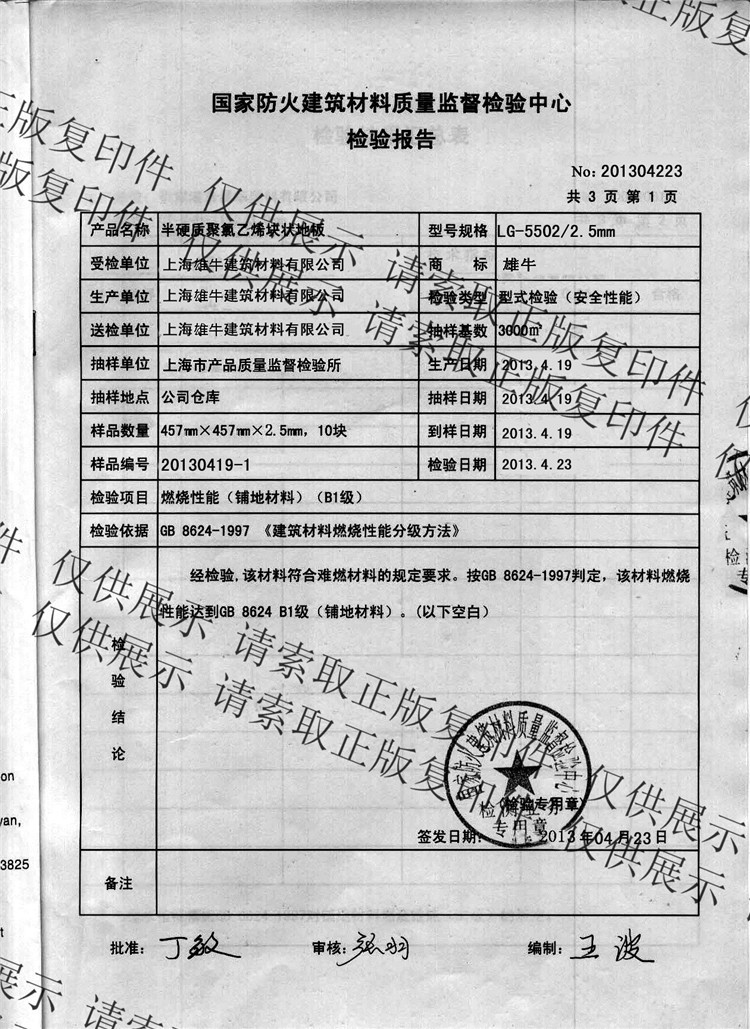 国家防火建筑材料质量监督检验中心
检验报告
No: 201304223
共 3 页 第 1 页
产品名称 半硬质聚氯乙烯块状地板 型号规格 LG-5502/2.5mm
受检单位 上海雄牛建筑材料有限公司 商 标 雄牛
生产单位 上海雄牛建筑材料有限公司 检验类型 型式检验（安全性能）
送检单位 上海雄牛建筑材料有限公司 抽样基数 3000㎡
抽样单位 上海市产品质量监督检验所 生产日期 2013.4.19
抽样地点 公司仓库 抽样日期 2013.4.19
样品数量 457mm×457mm×2.5mm, 10块 到样日期 2013.4.19
样品编号 20130419-1 检验日期 2013.4.23
检验项目 燃烧性能（铺地材料）（B1级）
检验依据 GB 8624-1997 《建筑材料燃烧性能分级方法》
检验结论
经检验,该材料符合难燃材料的规定要求。按GB 8624-1997判定，该材料燃烧
性能达到GB 8624 B1级（铺地材料）。(以下空白)
国家防火建筑材料质量监督检验中心
(检验专用章)
专用章
签发日期: 2013年04月23日
备注
批准: 丁敏 审核: 张羽 编制: 王波
正版复印件 仅供展示 请索取正版复印件
版复印件 仅供展示 请索取正版复印件
仅供展示 请索取正版复印件 仅供展示
仅供展示 请索取正版复印件 仅供展示
正版复
展示 请索
on
yan,
3825
t